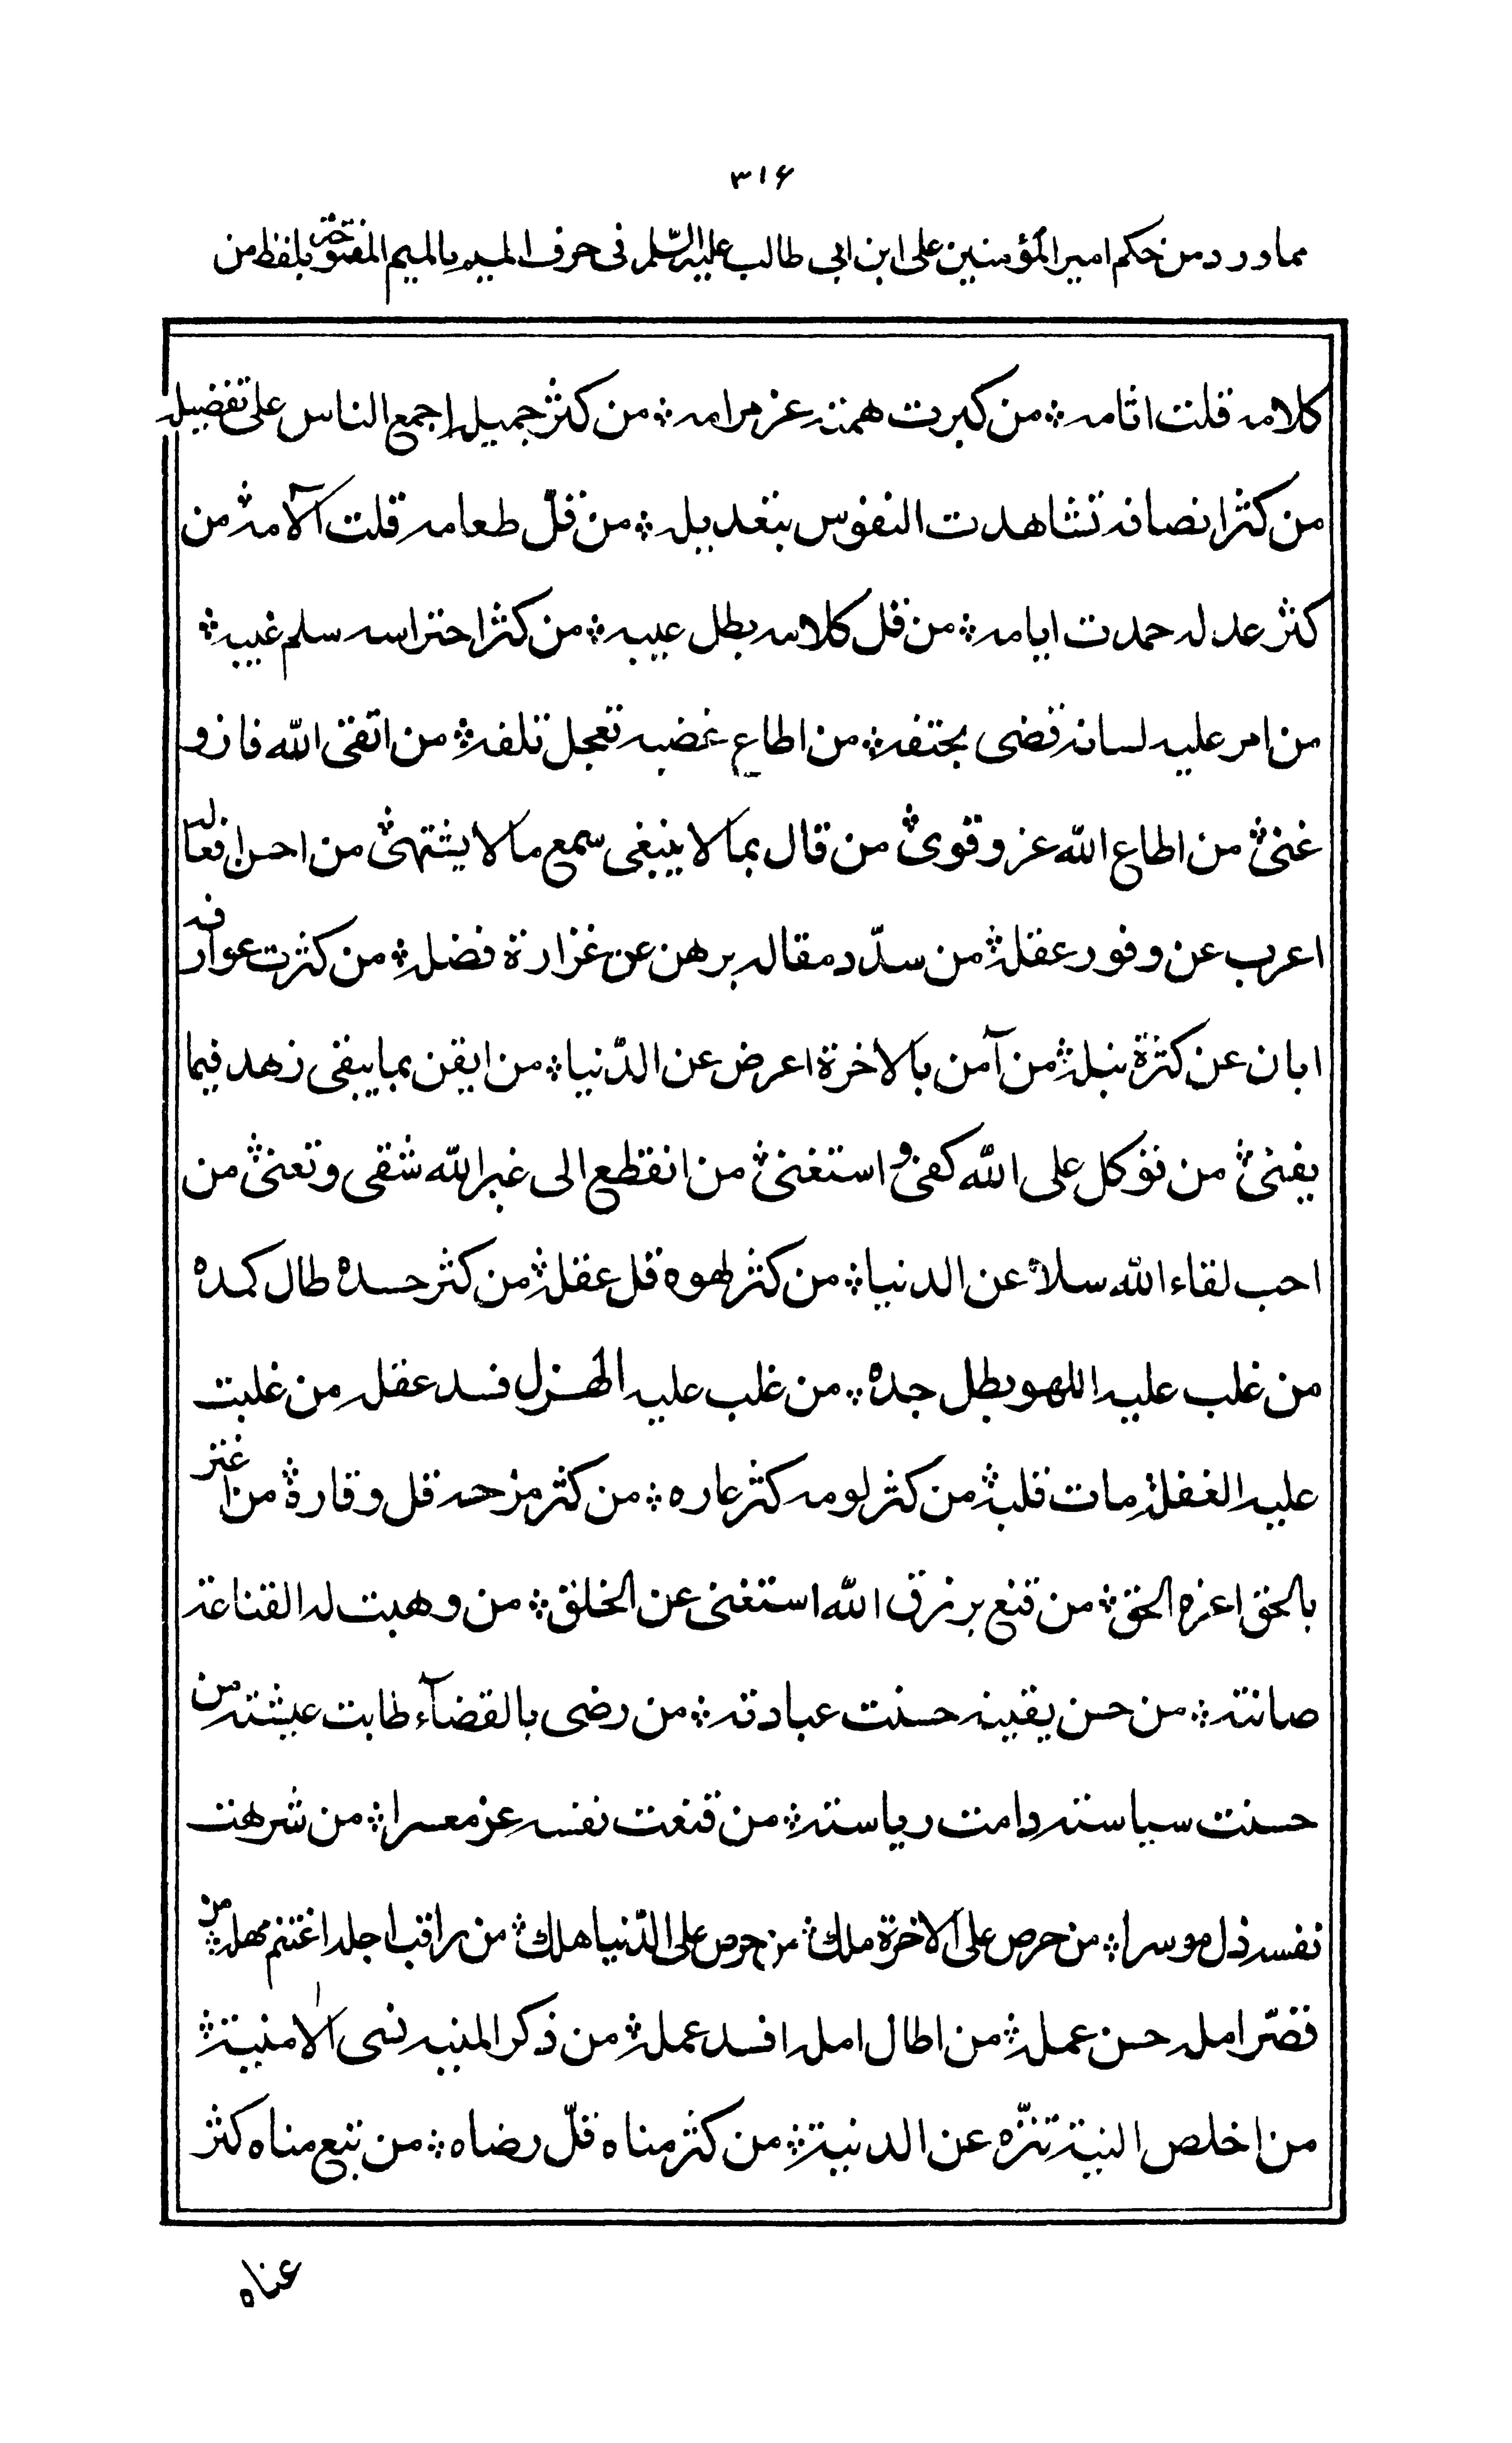 ۳۱۶
مما ورد من حكم امير المؤمنين على ابن ابى طالب عليه السّلم فى حرف الميم بالميم المفتوحة بلفظ من
كلامه قلت اثامه ؞ من كبرت همته عز مرامه ؞ من كثر جميله اجمع الناس على تفضيله
من كثر انصافه تشاهدت النفوس بتعديله ؞ من قلّ طعامه قلت آلامه ؞ من
كثر عدله حمدت ايامه ؞ من قل كلامه بطل عيبه ؞ من كثر احتراسه سلم غيبه ؞
من امر عليه لسانه قضى بحتفه ؞ من اطاع غضبه تعجل تلفه ؞ من اتقى اللّه فاز و
غنى ؞ من اطاع اللّه عز و قوى ؞ من قال بما لا ينبغى سمع ما لا يشتهى ؞ من احسن افعاله
اعرب عن وفور عقله ؞ من سدّد مقاله برهن عن غزارة فضله ؞ من كثرت عوارفه
ابان عن كثرة نبله ؞ من آمن بالاخرة اعرض عن الدّنيا ؞ من ايقن بما يبقى زهد فيما
يفنى ؞ من توكل على اللّه كفى و استغنى ؞ من انقطع الى غير اللّه شقى و تعنى ؞ من
احب لقاء اللّه سلا عن الدنيا ؞ من كثر لهوه قل عقله ؞ من كثر حسده طال كمده
من غلب عليه اللهو بطل جده ؞ من غلب عليه الهزل فسد عقله من غلبت
عليه الغفلة مات قلبه ؞ من كثر لومه كثر عاره ؞ من كثر مزحه قل وقاره ؞ من اغتز
بالحق اعزه الحق ؞ من قنع برزق اللّه استغنى عن الخلق ؞ من وهبت له القناعة
صانته ؞ من حسن يقينه حسنت عبادته ؞ من رضى بالقضآء طابت عيشته من
حسنت سياسته دامت رياسته ؞ من قنعت نفسه عز معسرا ؞ من شرهت
نفسه ذل موسرا ؞ من حرص على الاخرة ملك ؞ من حرص على الدّنيا هلك ؞ من راقب اجله اغتنم مهله ؞ من
قصّر امله حسن عمله ؞ من اطال امله افسد عمله ؞ من ذكر المنيه نسى الامنية ؞
من اخلص النية تنزّه عن الدنية ؞ من كثر مناه قلّ رضاه ؞ من تبع مناه كثر
عناه